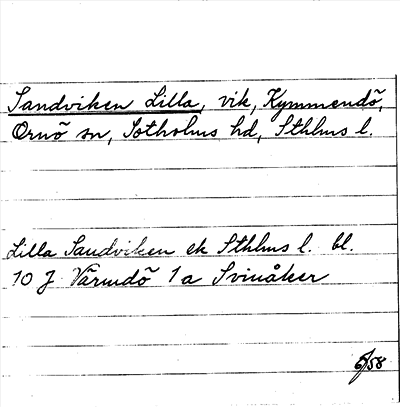 Sandviken Lilla, vik, Kymmendö,
Ornö sn, Sotholms hd, Sthlms l.
Lilla Sandviken ek Sthlms l. bl.
10 J Värmdö 1a Svinåker
6/58